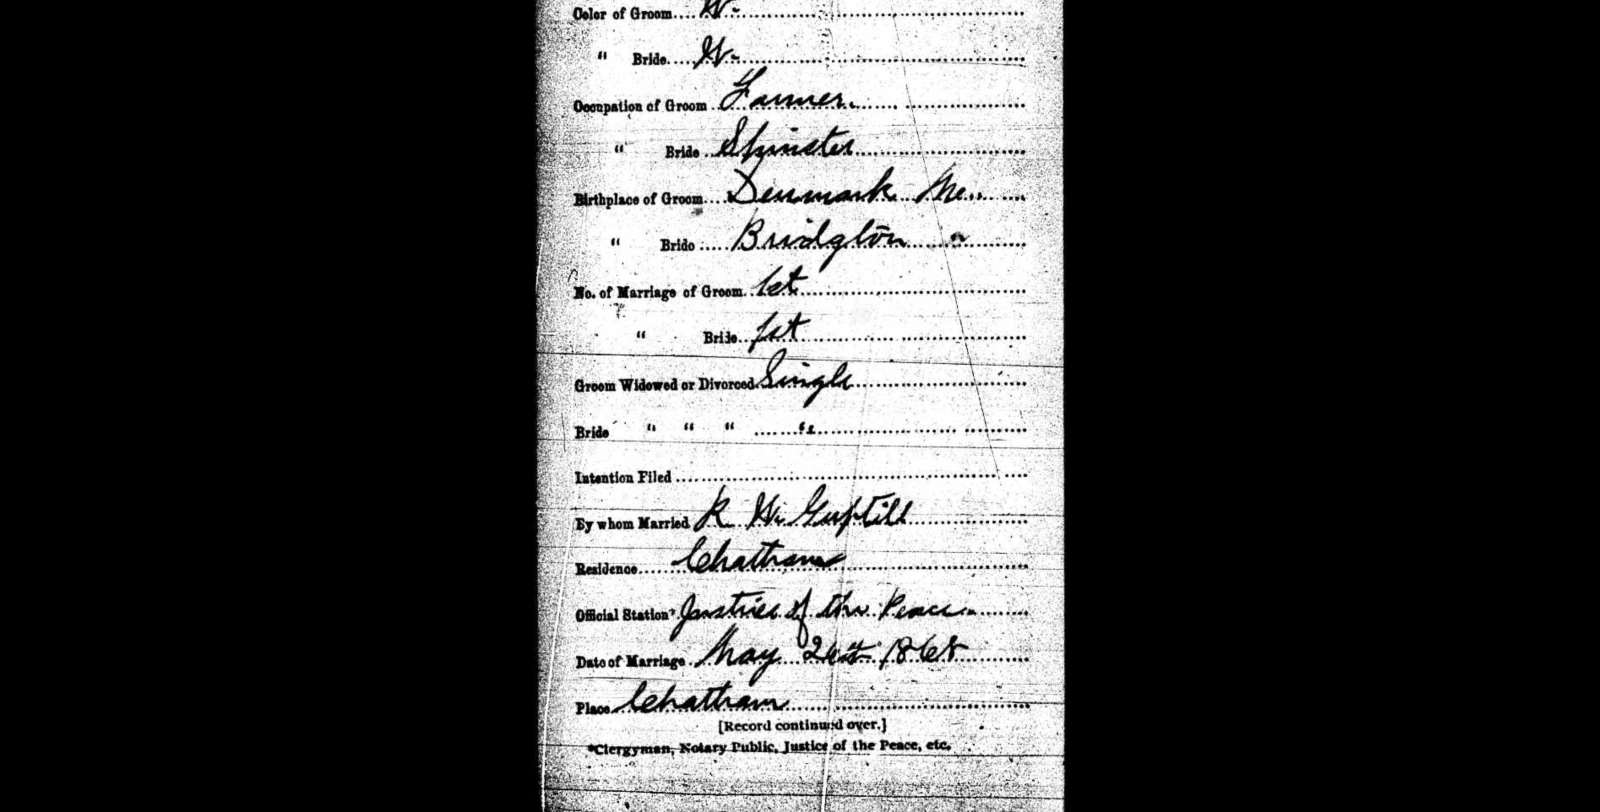 Color of Groom.... W.
" Bride.... W.
Occupation of Groom .. Farmer.
" Bride .. Spinster
Birthplace of Groom.... Denmark Me.
" Bride ..... Bridgton "
No. of Marriage of Groom.. 1st
" Bride.. 1st
Groom Widowed or Divorced Single
Bride " " " .... "
Intention Filed ....
By whom Married R. W. Guptill
Residence..... Chatham
Official Station* Justice of the Peace
Date of Marriage.. May 1868
Place Chatham
[Record continued over.]
*Clergyman, Notary Public, Justice of the Peace, etc.